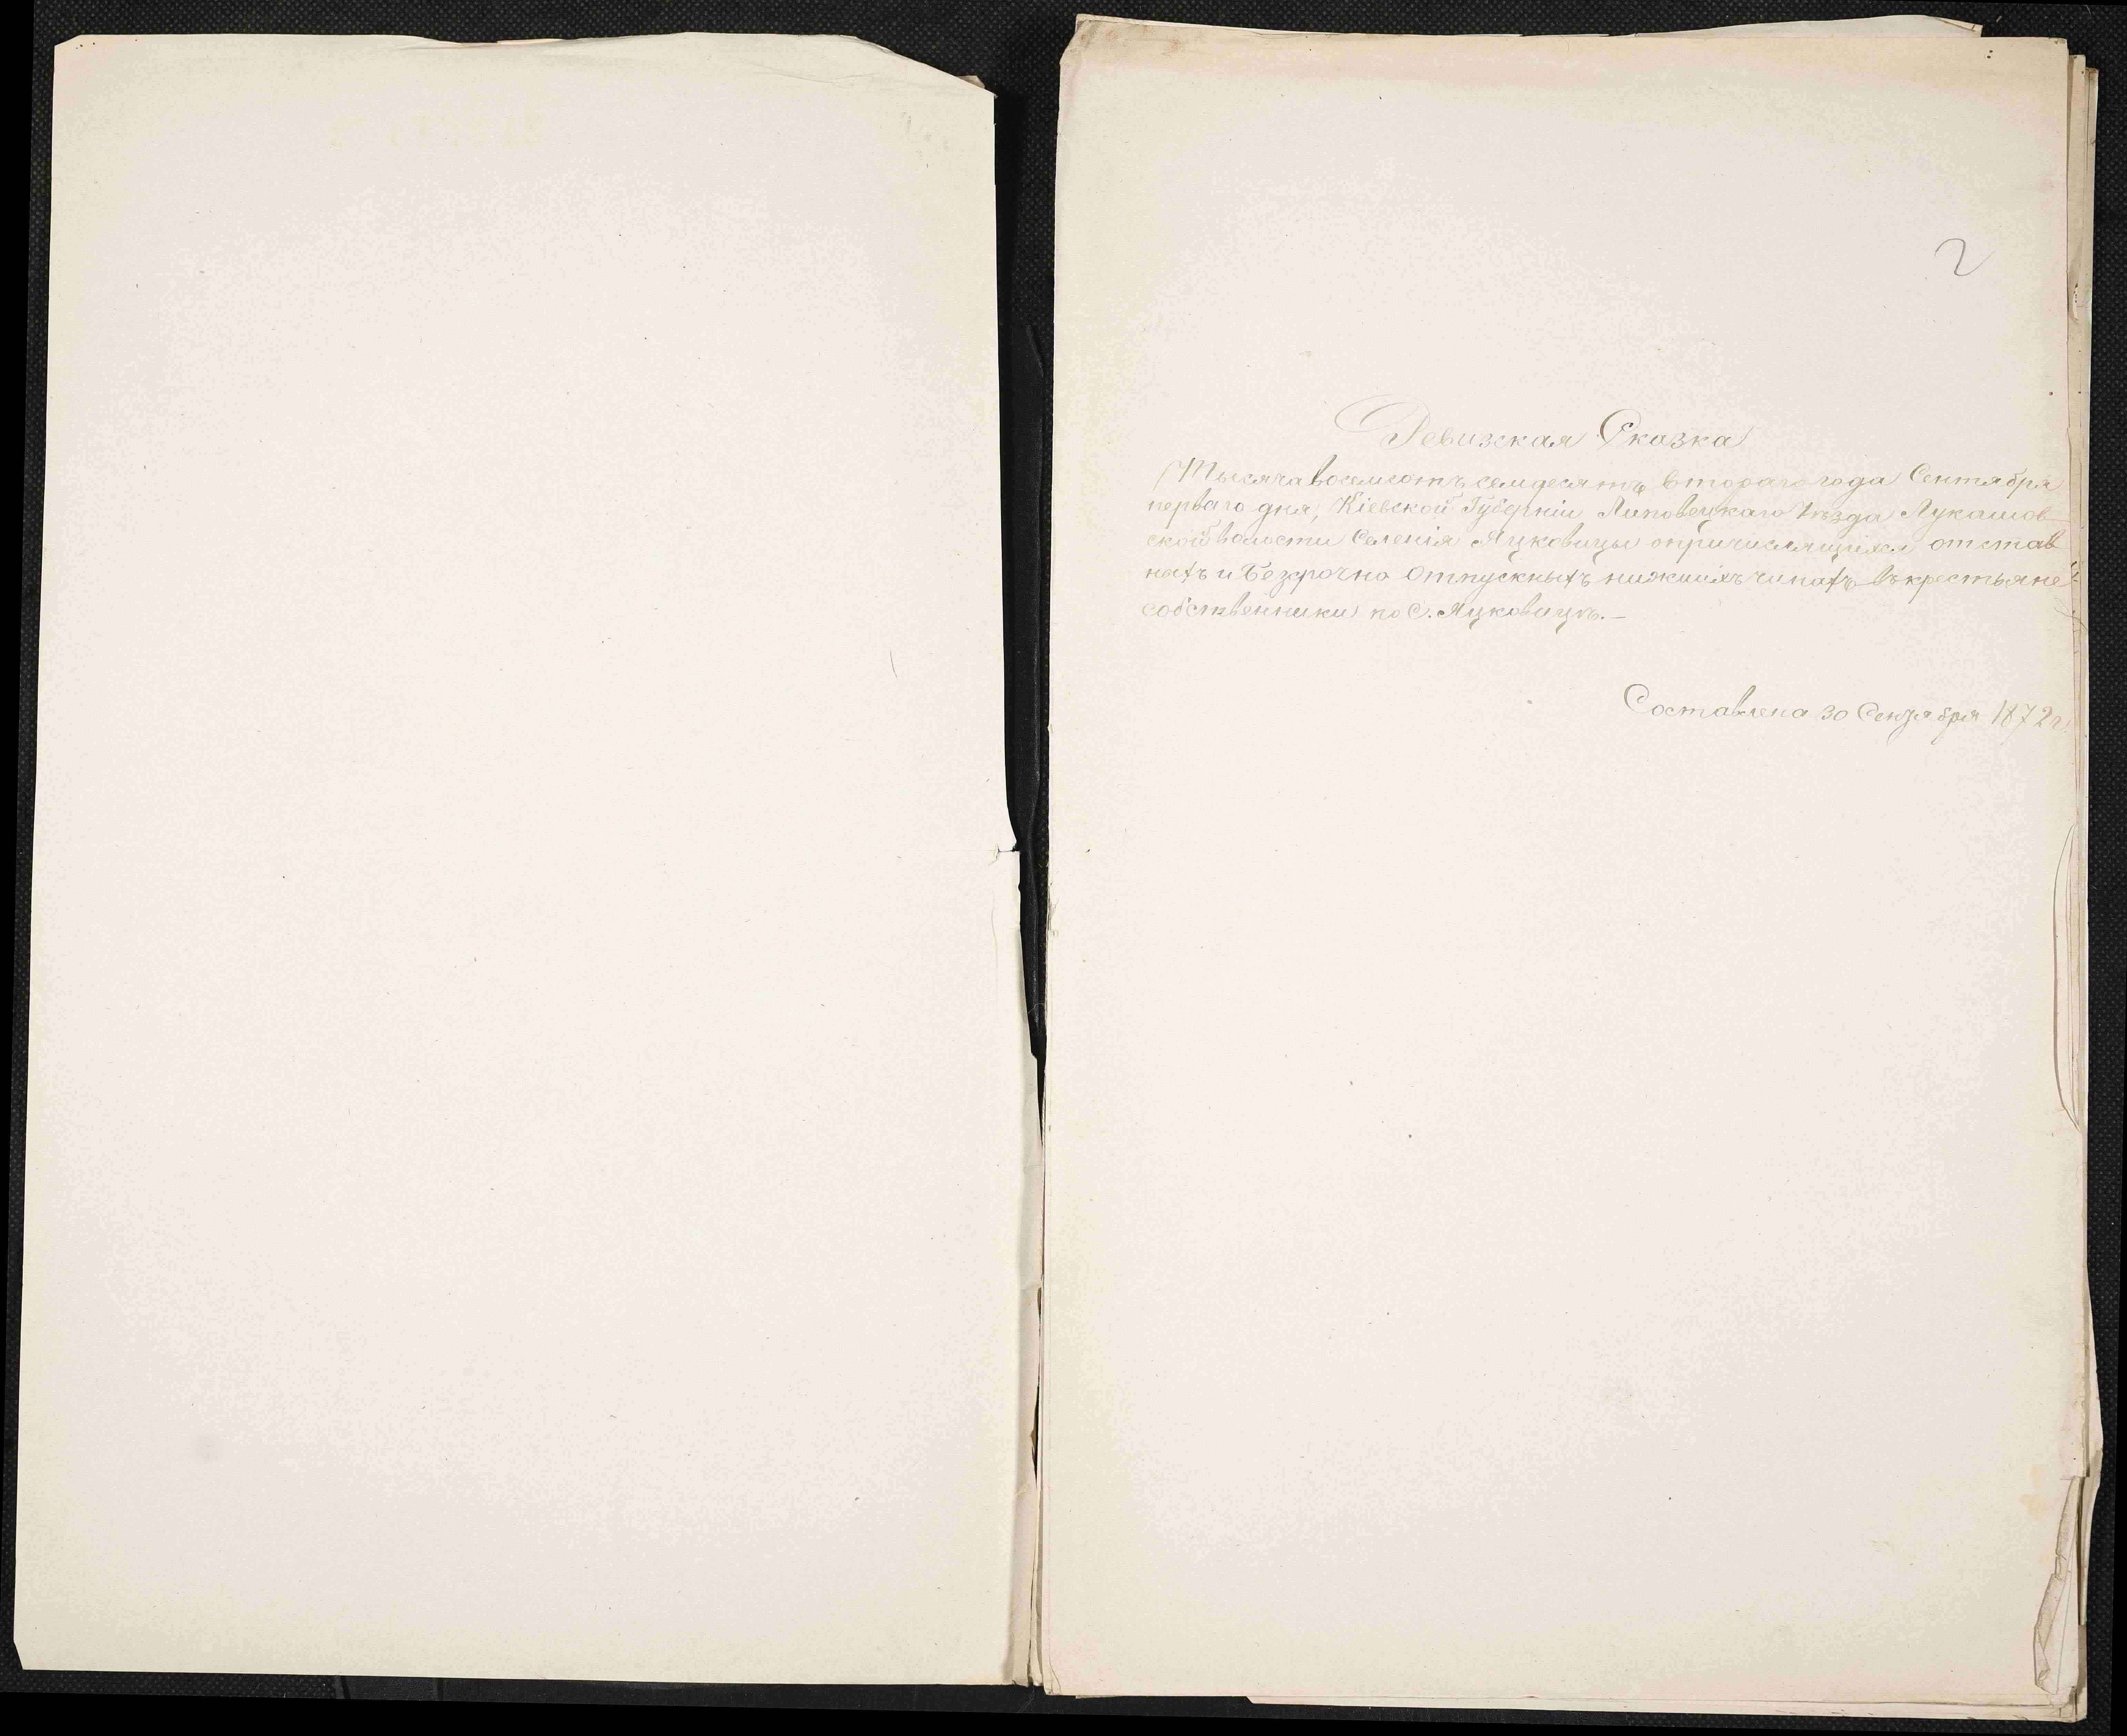 2
Ревизская Сказка
Тысяча восемсотъ семдесятъ втораго года Сентября
перваго дня, Кіевской Губерніи Липовецкаго Уѣзда Лукашов
ской волости Селенія Яцковицы опричислящихся отстав
ныхъ и Безрочно Отпускныхъ нижнихъ чинахъ въ крестьяне
собственники по С. Яцковицѣ.—
Составлена 30 Сентября 1872 г.